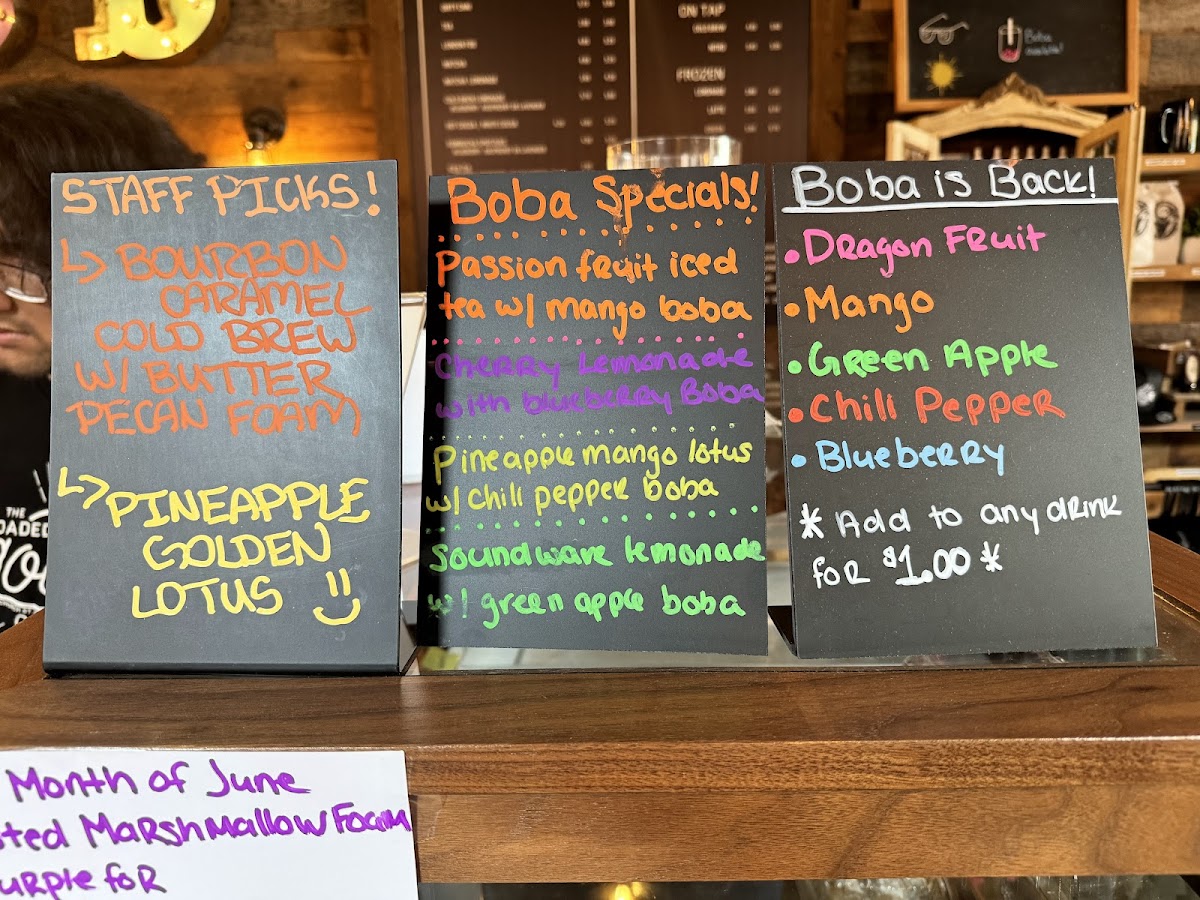 STAFF PICKS!
↳ BOURBON
CARAMEL
COLD BREW
W/ BUTTER
PECAN FOAM
↳ PINEAPPLE
GOLDEN
LOTUS
Boba Specials!
Passion fruit iced
tea w/ mango boba
Cherry Lemonade
with blueberry Boba
Pineapple mango lotus
w/ chili pepper boba
Soundwave lemonade
w/ green apple boba
Boba is Back!
• Dragon Fruit
• Mango
• Green Apple
• Chili Pepper
• Blueberry
* Add to any drink
for $1.00 *
Month of June
Marshmallow Foam
for
ON TAP
FROZEN
Boba
THE